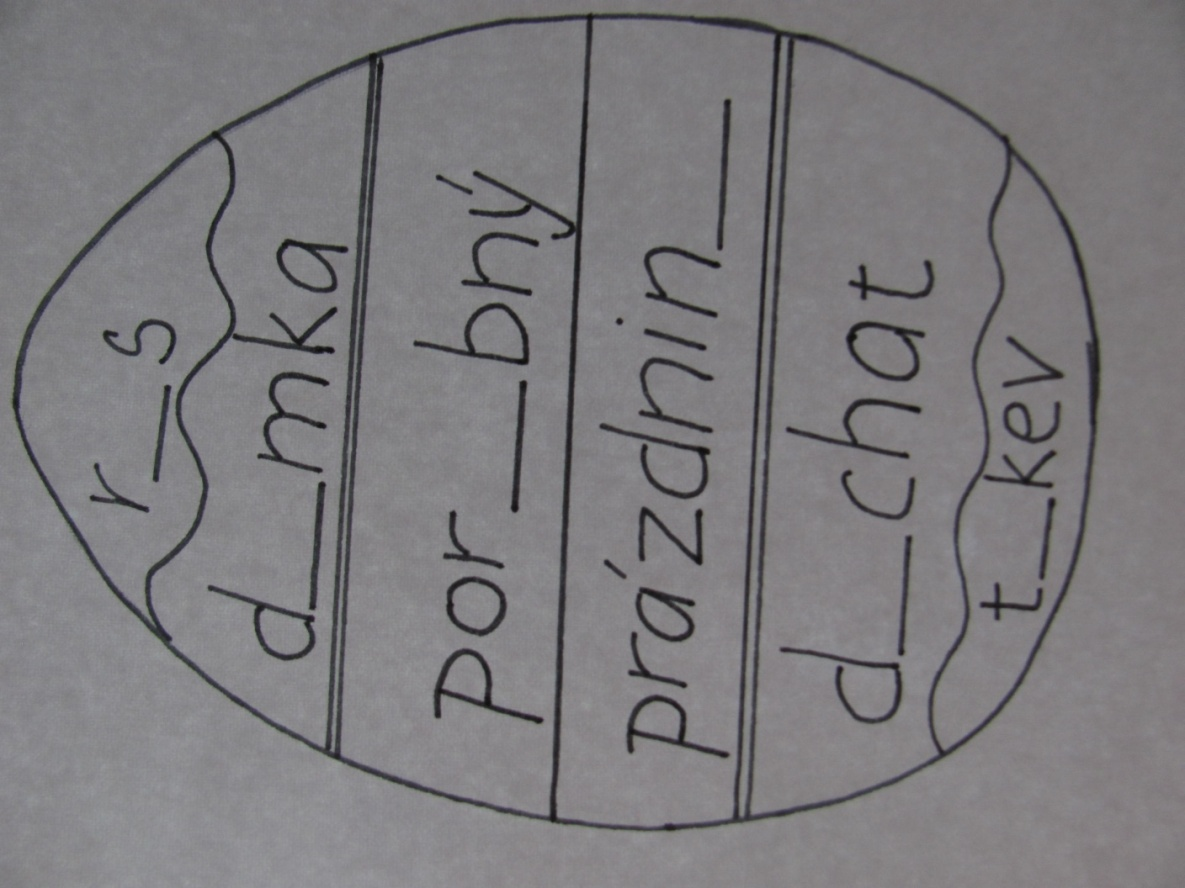 r_s
d_mka
Por_bný
prázdnin_
d_chat
t_kev